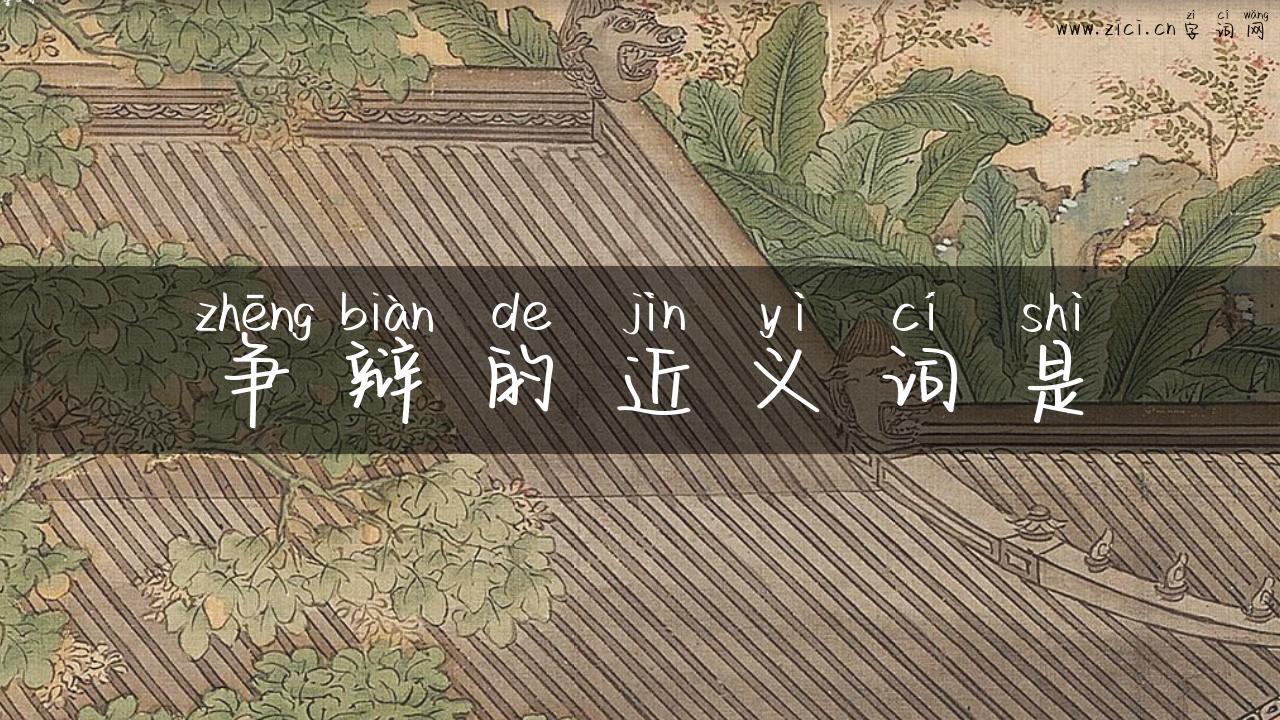 zì cí wǎng
www.zici.cn 字 词 网
zhēng biàn de jìn yì cí shì
争 辩 的 近 义 词 是